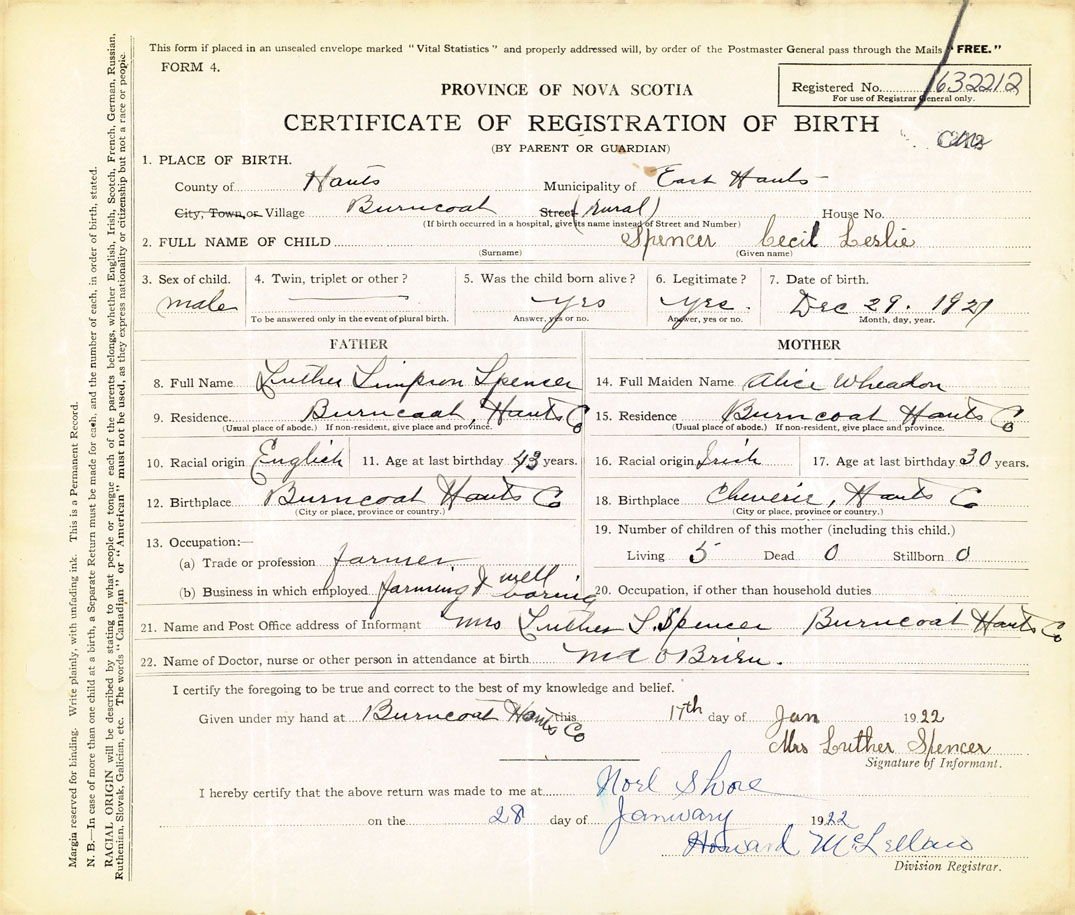 This form if placed in an unsealed envelope marked "Vital Statistics" and properly addressed will, by order of the Postmaster General pass through the Mails "FREE."
FORM 4.
Registered No. 632212
For use of Registrar General only.
PROVINCE OF NOVA SCOTIA
CERTIFICATE OF REGISTRATION OF BIRTH
(BY PARENT OR GUARDIAN)
1. PLACE OF BIRTH.
County of Hants Municipality of East Hants
City, Town, or Village Burncoat Street (rural) House No.
(If birth occurred in a hospital, give its name instead of Street and Number)
2. FULL NAME OF CHILD Spencer Cecil Leslie
(Surname) (Given name)
3. Sex of child. 4. Twin, triplet or other? 5. Was the child born alive? 6. Legitimate? 7. Date of birth.
male yes yes. Dec 29. 1921
To be answered only in the event of plural birth. Answer, yes or no. Answer, yes or no. Month, day, year.
FATHER MOTHER
8. Full Name Luther Simpson Spencer 14. Full Maiden Name Alice Wheadon
9. Residence Burncoat, Hants Co 15. Residence Burncoat Hants Co
(Usual place of abode.) If non-resident, give place and province. (Usual place of abode.) If non-resident, give place and province.
10. Racial origin English 11. Age at last birthday 43 years. 16. Racial origin Irish 17. Age at last birthday 30 years.
12. Birthplace Burncoat Hants Co 18. Birthplace Cheverie, Hants Co
(City or place, province or country.) (City or place, province or country.)
19. Number of children of this mother (including this child.)
13. Occupation:—
(a) Trade or profession farmer Living 5 Dead 0 Stillborn 0
(b) Business in which employed farming & well boring 20. Occupation, if other than household duties
21. Name and Post Office address of Informant Mrs Luther S. Spencer Burncoat Hants Co
22. Name of Doctor, nurse or other person in attendance at birth Md O'Brien.
I certify the foregoing to be true and correct to the best of my knowledge and belief.
Given under my hand at Burncoat Hants Co this 17th day of Jan 1922
Mrs Luther Spencer
Signature of Informant.
I hereby certify that the above return was made to me at Noel Shore
on the 28 day of January 1922
Howard McLellan
Division Registrar.
Margin reserved for binding. Write plainly, with unfading ink. This is a Permanent Record.
N. B.—In case of more than one child at a birth, a Separate Return must be made for each, and the number of each, in order of birth, stated.
RACIAL ORIGIN will be described by stating to what people or tongue each of the parents belongs, whether English, Irish, Scotch, French, German, Russian,
Ruthenian, Slovak, Galician, etc. The words "Canadian" or "American" must not be used, as they express nationality or citizenship but not a race or people.